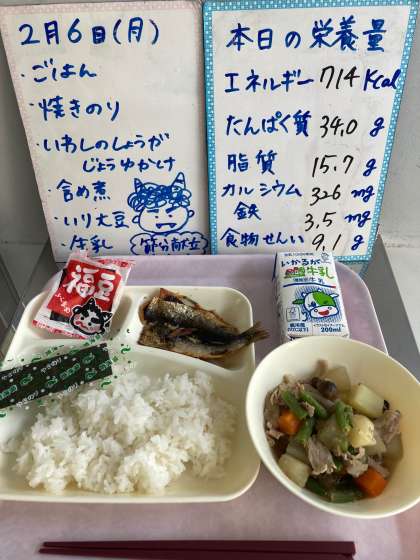 2月6日(月)
・ごはん
・焼きのり
・いわしのしょうが
じょうゆかけ
・含め煮
・いり大豆
・牛乳
節分献立
本日の栄養量
エネルギー 714 Kcal
たんぱく質 34.0 g
脂質 15.7 g
カルシウム 326 mg
鉄 3.5 mg
食物せんい 9.1 g
福豆
いかるが
牛乳
200ml